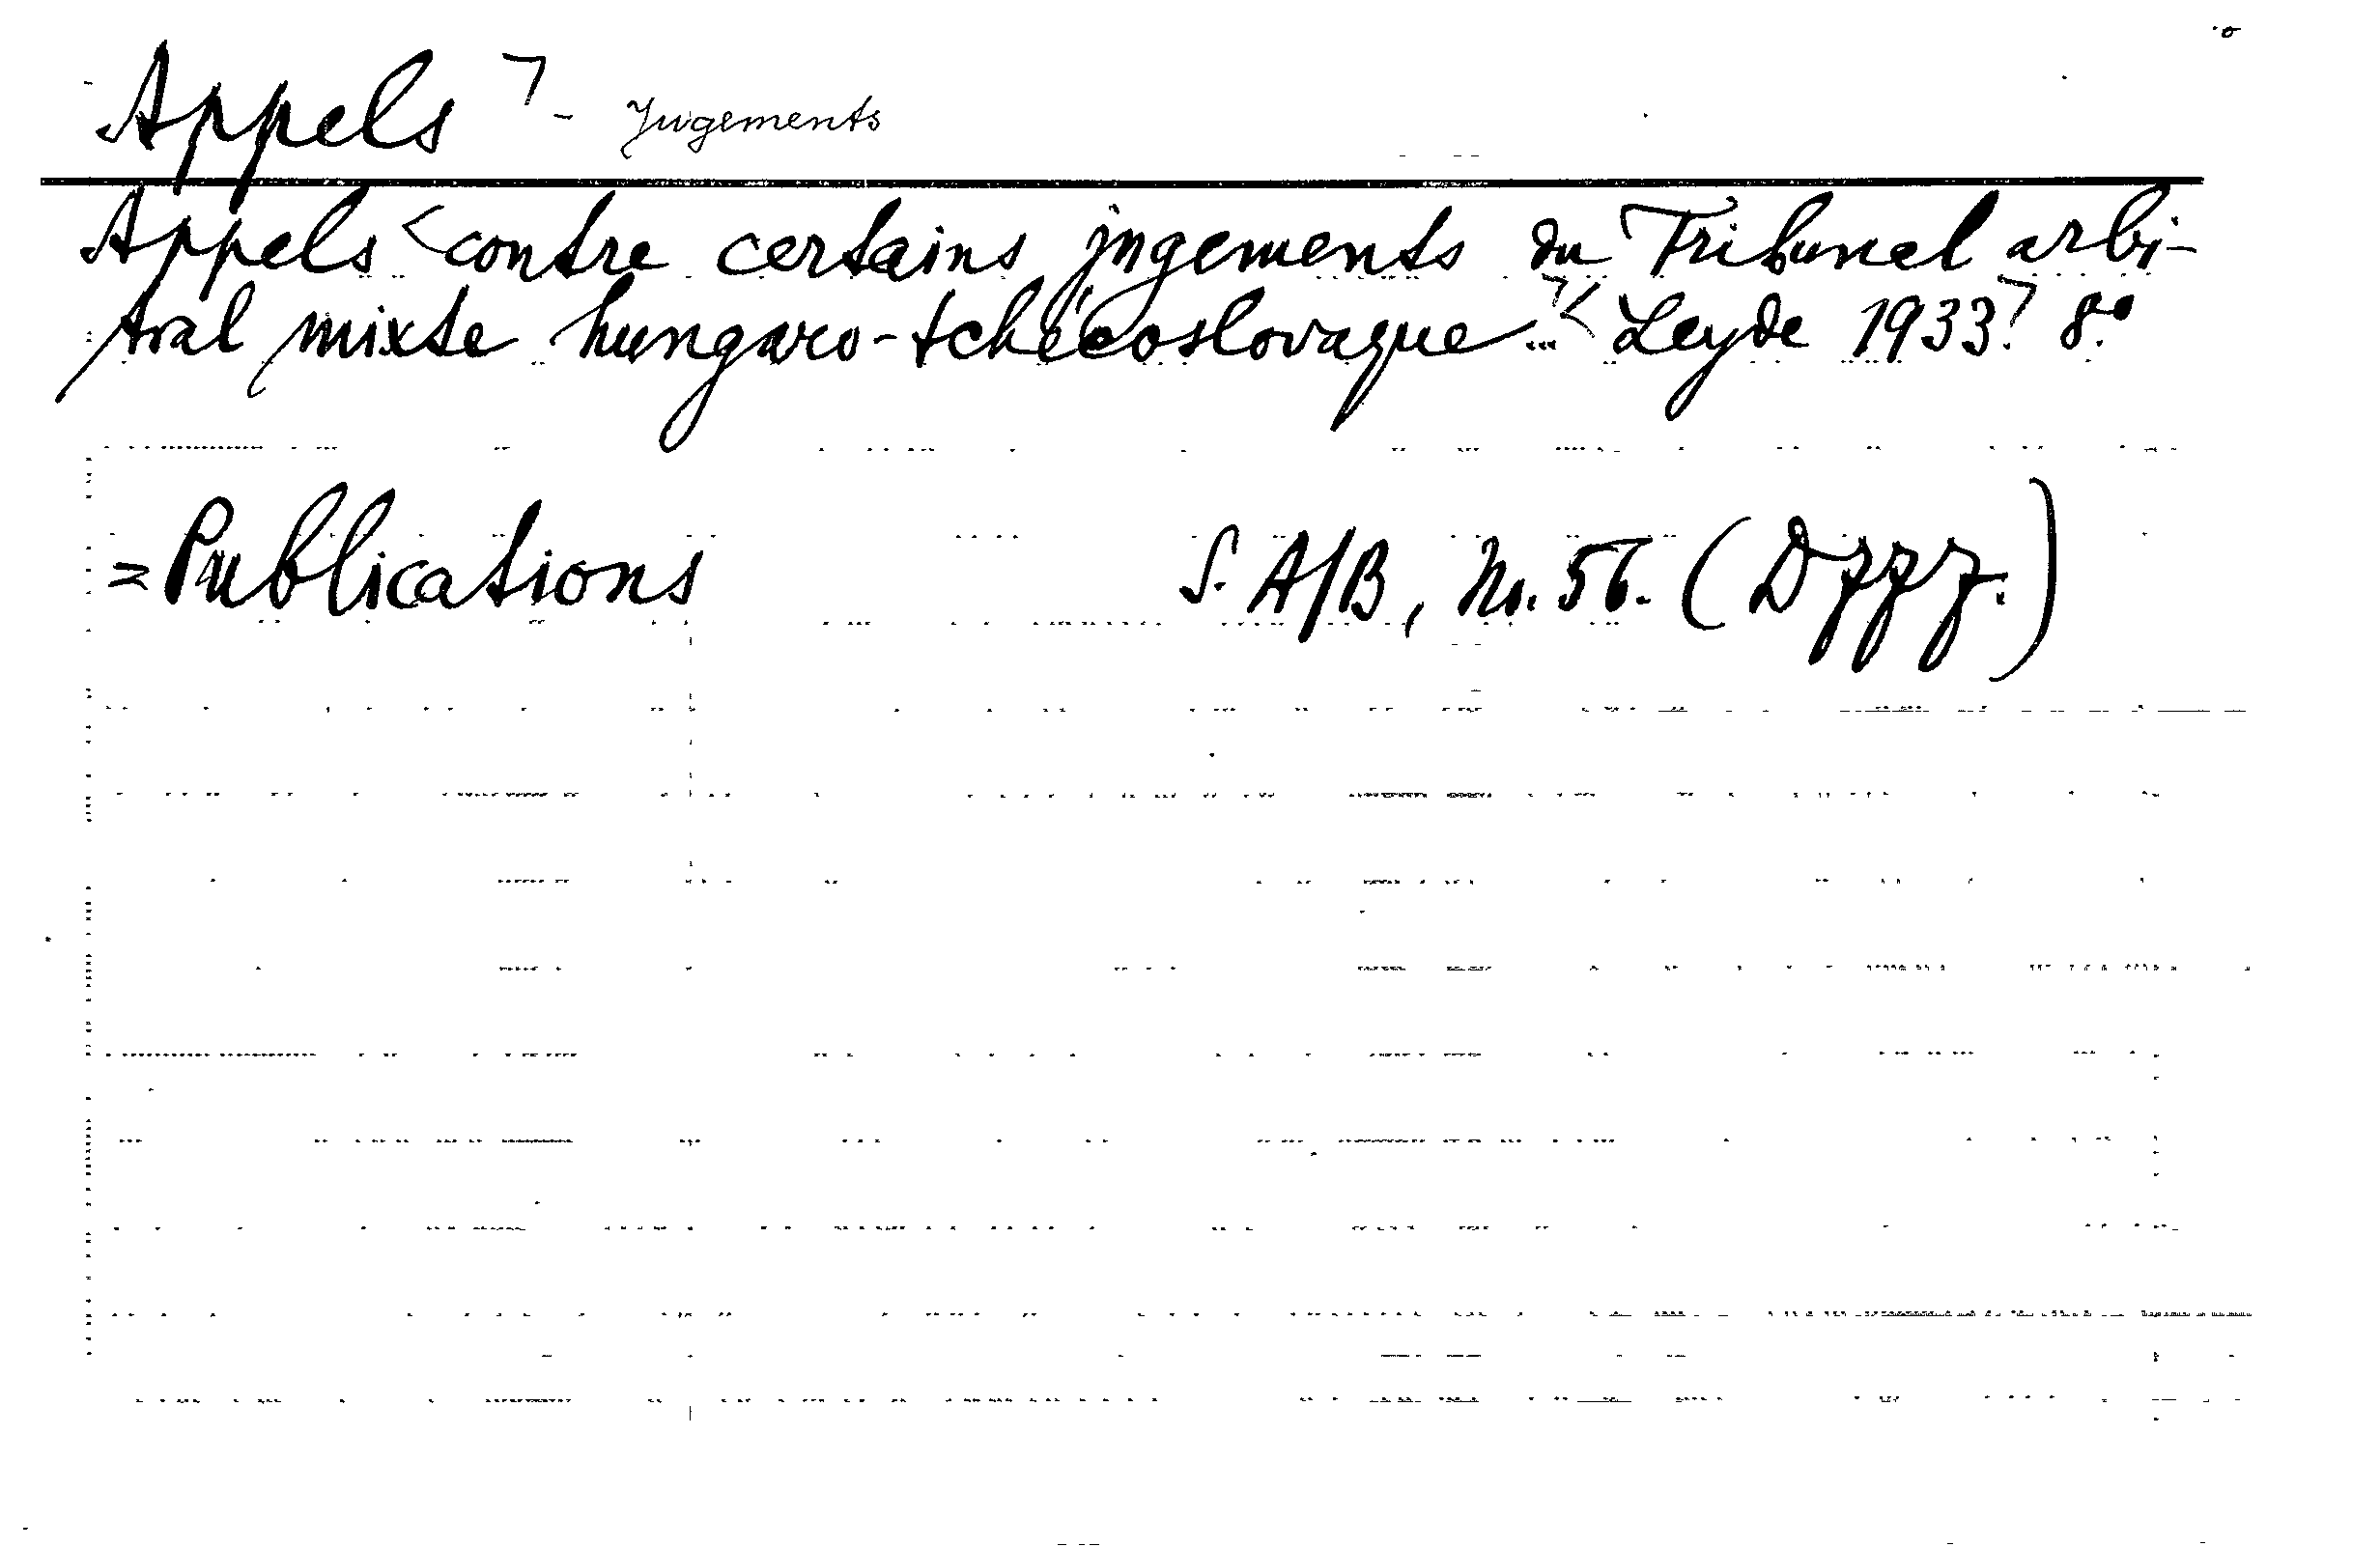 Appels ⁊ - Jugements
Appels < contre certains jugements du Tribunal arbi-
tral mixte hungaro-tchécoslovaque ...⁊ < Leyde 1933.⁊ 8.°
= Publications S. A/B, No. 56. (D